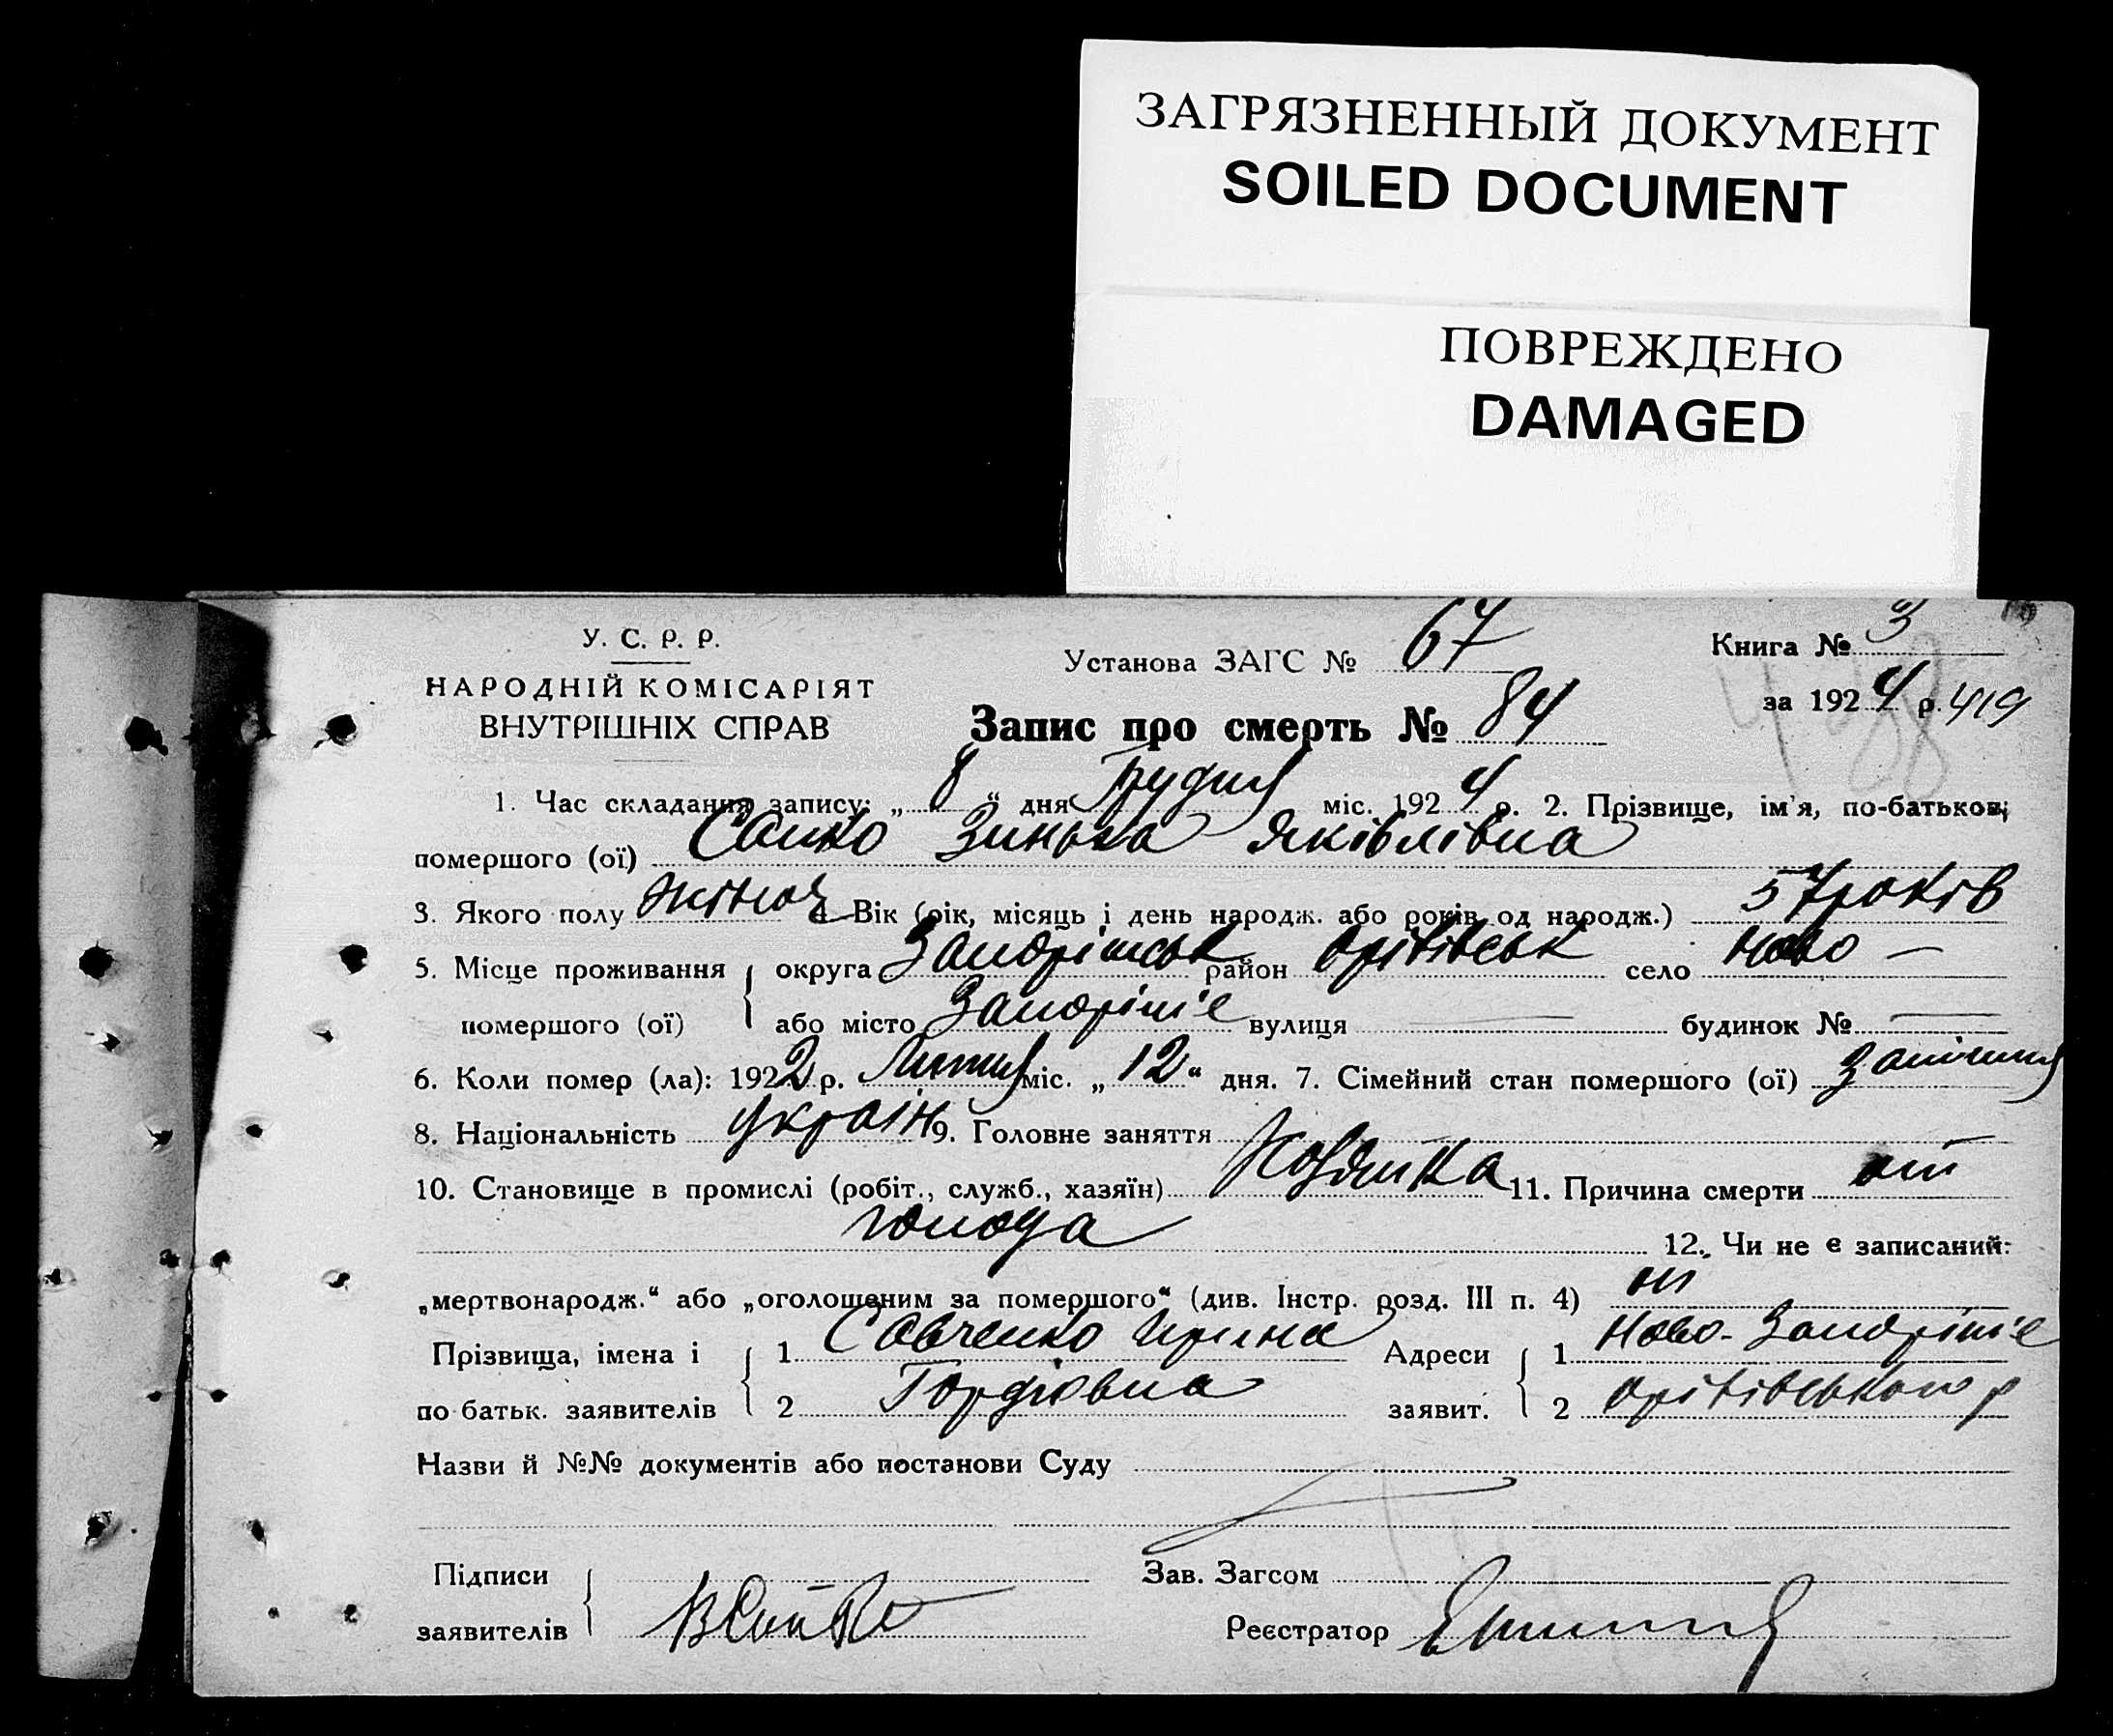 ЗАГРЯЗНЕННЫЙ ДОКУМЕНТ
SOILED DOCUMENT
ПОВРЕЖДЕНО
DAMAGED
У. С. Р. Р.
НАРОДНІЙ КОМІСАРІЯТ
ВНУТРІШНІХ СПРАВ
Установа ЗАГС № 67
Книга № 3
за 1924 р. 419
Запис про смерть № 84
1. Час складання запису: „ 8 “ дня Грудня міс. 1924 р. 2. Прізвище, ім'я, по-батькові
помершого (ої) Зинька Яківлівна
3. Якого полу жіноч 4. Вік (рік, місяць і день народж. або років од народж.) 57 років
5. Місце проживання округа Запоріжськ район Оріхівськ село Ново –
помершого (ої) або місто Запоріжже вулиця — будинок № —
6. Коли помер (ла): 1922 р. Лютня міс. „ 12 “ дня. 7. Сімейний стан помершого (ої) Заміжня
8. Національність україн 9. Головне заняття
10. Становище в промислі (робіт., служб., хазяїн) Хозяйка 11. Причина смерти від
голода 12. Чи не є записаний:
„мертвонародж.“ або „оголошеним за помершого“ (див. Інстр. розд. III п. 4) ні
Прізвища, імена і 1 Савченко Ирина Адреси 1 Ново-Запоріжже
по батьк. заявителів 2 Гордіовна заявит. 2 Оріхівського р
Назви й №№ документів або постанови Суду
Підписи Зав. Загсом
заявителів Реєстратор